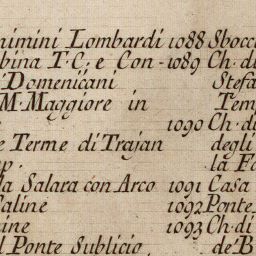 nimini Lombardi 1088 Sbocc
bina T. C. e Con- 1089 Ch. d
i Domenicani Stefa
M. Maggiore in Tem
1090 Ch. d
e Terme di Trajan degli
la Fo
la Salara con Arco 1091 Casa
Saline 1092 Ponte
ine 1093 Ch. di
l Ponte Sublicio de' B